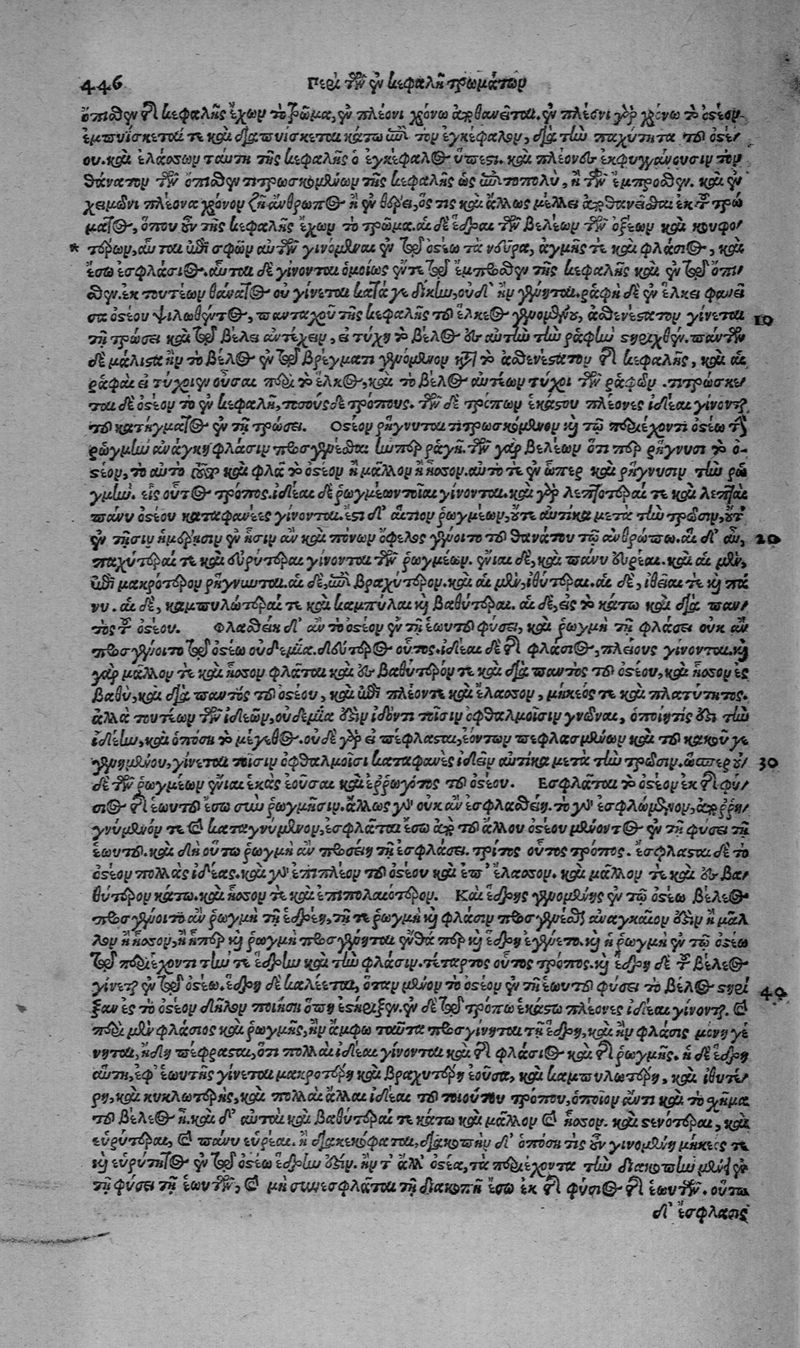 446 Περὶ τῶν ἐν κεφαλῇ τρωμάτων
ὄπιθεν τῆς κεφαλῆς ἔχων τὸ τρῶμα, ἐν πλέονι χρόνῳ ἀποθανεῖται. ἐν πλέονι γὰρ χρόνῳ τὸ ὀστέον
ἐμπυΐσκεταί τε καὶ διαπυΐσκεται κάτω ἐπὶ τὸν ἐγκέφαλον, διὰ τὴν παχύτητα τοῦ ὀστέ
ου. καὶ ἐλάσσων ταύτῃ τῆς κεφαλῆς ὁ ἐγκέφαλος ὕπεστι. καὶ πλέον δὲ ἐκφυγγάνουσιν τὸν
θάνατον τῶν ὄπιθεν τιτρωσκομένων τῆς κεφαλῆς ὡς ἐπιτοπολὺ, ἢ τῶν ἔμπροθεν. καὶ ἐν
χειμῶνι πλέονα χρόνον ζῇ ἄνθρωπος ἢ ἐν θέρει, ὅς τις καὶ ἄλλως μέλλει ἀποθανεῖσθαι ἐκ τοῦ τρώ
ματος, ὅπου ἂν τῆς κεφαλῆς ἔχων τὸ τρῶμα. αἱ δὲ ἕδραι τῶν βελέων τῶν ὀξέων καὶ κουφο
* τέρων, αὗται ἐπὶ σφῶν αὐτῶν γινόμεναι ἐν τῷ ὀστέῳ τὰ νεῦρα, ἀγμῆς τε καὶ φλάσιος, καὶ
ἔσω ἐσφλάσιος. αὗται δὲ γίνονται ὁμοίως ἔν τε τῷ ἔμπροθεν τῆς κεφαλῆς καὶ ἐν τῷ ὄπι
θεν. ἐκ τουτέων θάνατος οὐ γίνεται κατά γε δίκην, οὐδ' ἢν γένηται. ῥαφὴ δὲ ἐν ἕλκει φανεῖ
σα ὀστέου ψιλωθέντος, πανταχοῦ τῆς κεφαλῆς τοῦ ἕλκεος γενομένου, ἀσθενέστατον γίνεται 10
τῇ τρώσει καὶ τῷ βέλει ἀντέχειν, εἰ τύχῃ τὸ βέλος ἐς αὐτὴν τὴν ῥαφὴν στηριχθέν. πάντων
δὲ μάλιστα ἢν τὸ βέλος ἐν τῷ βρέγματι γενόμενον κατὰ τὸ ἀσθενέστατον τῆς κεφαλῆς, καὶ αἱ
ῥαφαὶ εἰ τύχοιεν οὖσαι περὶ τὸ ἕλκος, καὶ τὸ βέλος αὐτέων τύχοι τῶν ῥαφῶν. τιτρώσκε
ται δὲ ὀστέον τὸ ἐν κεφαλῇ, τοσούςδε τρόπους. τῶν δὲ τρόπων ἑκάστου πλέονες ἰδέαι γίνονται
τοῦ κατήγματος ἐν τῇ τρώσει. Οστέον ῥήγνυται τιτρωσκόμενον καὶ τῷ περιέχοντι ὀστέῳ τὴν
ῥωγμὴν ἀνάγκη φλάσιν προσγενέσθαι ἤνπερ ῥαγῇ. τῶν γὰρ βελέων ὅτι πὲρ ῥήγνυσι τὸ ὀ
στέον, τὸ αὐτὸ τοῦτο καὶ φλᾷ τὸ ὀστέον ἢ μᾶλλον ἢ ἧσσον. αὐτό τε ἐν ᾧπερ καὶ ῥήγνυσιν τὴν ῥω
γμήν. εἷς οὗτος τρόπος. ἰδέαι δὲ ῥωγμέων ποῖαι γίνονται. καὶ γὰρ λεπτότεραί τε καὶ λεπταὶ
πάνυ ὀστέου καταφανέες γίνονται. ἔστι δ' αἴτιον ῥωγμέων, οὔτε αὐτίκα μετὰ τὴν τρῶσιν, οὔτ'
ἐν τῇσιν ἡμέρῃσιν ἐν ᾗσιν ἂν καὶ πόνων ὄφελος γένοιτο τοῦ θανάτου τῷ ἀνθρώπῳ. αἱ δ' αὖ, 20
παχύτεραί τε καὶ εὐρύτεραι γίνονται τῶν ῥωγμέων. ἔνιαι δὲ, καὶ πάνυ εὐρέαι. καὶ αἱ μὲν,
ἐπὶ μακρότερον ῥήγνυνται. αἱ δὲ, ἐπὶ βραχύτερον. καὶ αἱ μὲν, ἰθύτεραι. αἱ δὲ, ἰθεῖαι τε καὶ πά
νυ. αἱ δὲ, καμπυλώτεραί τε καὶ καμπύλαι καὶ βαθύτεραι. αἱ δὲ, εἰς τὸ κάτω καὶ διὰ παν
τὸς τοῦ ὀστέου. Φλασθείη δ' ἂν τὸ ὀστέον ἐν τῇ ἑωυτοῦ φύσει, καὶ ῥωγμὴ τῇ φλάσει οὐκ ἂν
προσγένοιτο τῷ ὀστέῳ οὐδεμία. δεύτερος οὗτος. ἰδέαι δὲ τῆς φλάσιος, πλείους γίνονται. καὶ
γὰρ μᾶλλον τε καὶ ἧσσον φλᾶται καὶ ἐς βαθύτερόν τε καὶ διὰ παντὸς τοῦ ὀστέου, καὶ ἧσσον ἐς
βαθὺ, καὶ διὰ παντὸς τοῦ ὀστέου, καὶ ἐπὶ πλέοντε καὶ ἔλασσον, μήκεός τε καὶ πλατύτητος.
ἀλλὰ τουτέων τῶν ἰδεῶν, οὐδεμία ἐστὶν ἰδόντι τοῖσιν ὀφθαλμοῖσιν γνῶναι, ὁποίητίς ἐστι τὴν
ἰδέην, καὶ ὁπόση τὸ μέγεθος. οὐδὲ γὰρ εἰ πέφλασται, ἐόντων πεφλασμένων καὶ τοῦ κακοῦ γε
γενημένου, γίνεται τοῖσιν ὀφθαλμοῖσι καταφανὲς ἰδεῖν αὐτίκα μετὰ τὴν τρῶσιν. ὥσπερ οὐ 30
δὲ τῶν ῥωγμέων ἔνιαι ἑκὰς ἐοῦσαι καὶ ἐῤῥωγότος τοῦ ὀστέου. Εσφλᾶται τὸ ὀστέον ἐκ τῆς φύ
σιος τῆς ἑωυτοῦ ἔσω σὺν ῥωγμῇσιν. ἄλλως γὰρ οὐκ ἂν ἐσφλασθείη. τὸ γὰρ ἐσφλώμενον, ἀποῤῥη
γνύμενόν τε καὶ καταγνύμενον, ἐσφλᾶται ἔσω ἀπὸ τοῦ ἄλλου ὀστέου μένοντος ἐν τῇ φύσει τῇ
ἑωυτοῦ. καὶ δὴ οὕτω ῥωγμὴ ἂν προσείη τῇ ἐσφλάσει. τρίτος οὗτος τρόπος. ἐσφλᾶται δὲ τὸ
ὀστέον πολλὰς ἰδέας. καὶ γὰρ ἐπιπλέον τοῦ ὀστέου καὶ ἐπ' ἔλασσον. καὶ μᾶλλον τε καὶ ἐς βα
θύτερον κάτω. καὶ ἧσσον τε καὶ ἐπιπολαιότερον. Καὶ ἕδρης γενομένης ἐν τῷ ὀστέῳ βέλεος
προσγένοιτο ἂν ῥωγμὴ τῇ ἕδρῃ, τῇ τε ῥωγμῇ καὶ φλάσιν προσγενέσθαι ἀναγκαῖον ἐστὶν ἢ μᾶλ
λον ἢ ἧσσον, ἤνπερ καὶ ῥωγμὴ προσγένηται ἔνθα πὲρ καὶ ἕδρη ἐγένετο. καὶ ἡ ῥωγμὴ ἐν τῷ ὀστέῳ
τῷ περιέχοντι τήν τε ἕδρην καὶ τὴν φλάσιν. τέταρτος οὗτος τρόπος. καὶ ἕδρη δὲ τοῦ βέλεος
γίνεται ἐν τῷ ὀστέῳ. ἕδρη δὲ καλέεται, ὅταν μένον τὸ ὀστέον ἐν τῇ ἑωυτοῦ φύσει τὸ βέλος στηρί 40
ξαν ἐς τὸ ὀστέον δῆλον ποιήσῃ ὅπῃ ἐστήριξεν. ἐν δὲ τῷ τρόπῳ ἑκάστῳ πλέονες ἰδέαι γίνονται. καὶ
περὶ μὲν φλάσιος καὶ ῥωγμῆς, ἢν ἄμφω ταῦτα προσγίνηται τῇ ἕδρῃ, καὶ ἢν φλάσις μόνη γέ
νηται, ἤδη πέφρασται, ὅτι πολλαὶ ἰδέαι γίνονται καὶ τῆς φλάσιος καὶ τῆς ῥωγμῆς. ἡ δὲ ἕδρη
αὕτη, ἐφ' ἑωυτῆς γίνεται μακροτέρη καὶ βραχυτέρη ἐοῦσα, καὶ καμπυλωτέρη, καὶ ἰθυτέ
ρη, καὶ κυκλωτέρης, καὶ πολλαὶ ἄλλαι ἰδέαι τοῦ τοιούτου τρόπου, ὁποῖον ἄν τι καὶ τὸ χῆμα
τοῦ βέλεος ᾖ. καὶ δ' αὐταὶ καὶ βαθύτεραί τε κάτω καὶ μᾶλλον καὶ ἧσσον. καὶ στενότεραι, καὶ
εὐρύτεραι, καὶ πάνυ εὐρέαι. ἢ διακεκόφαται, διακοπὴν δ' ὁπόση τις ἂν γινομένη μήκεός τε
καὶ εὐρύτητος ἐν τῷ ὀστέῳ ἕδρην ἐστίν. ἤν τ' ἄλλ' ὀστέα, τὰ περιέχοντα τὴν διακοπὴν μένῃ ἐν
τῇ φύσει τῇ ἑωυτῶν, καὶ μὴ συνεσφλᾶται τῇ διακοπῇ ἔσω ἐκ τῆς φύσιος τῆς ἑωυτῶν. οὕτω
δ' ἔσφλασις